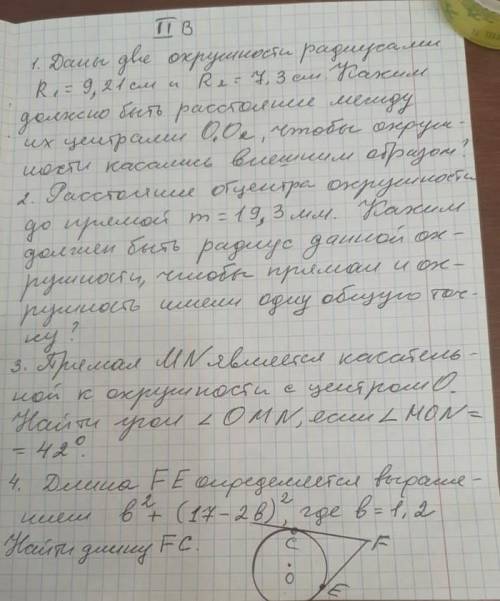 II В
1. Даны две окружности радиусами
R₁ = 9,21 см и R₂ = 7,3 см. Каким
должно быть расстояние между
их центрами O₁O₂, чтобы окруж-
ности касались внешним образом?
2. Расстояние от центра окружности
до прямой m = 19,3 мм. Каким
должен быть радиус данной ок-
ружности, чтобы прямая и ок-
ружность имели одну общую точ-
ку?
3. Прямая MN является касатель-
ной к окружности с центром O.
Найти угол ∠OMN, если ∠MON =
= 42°.
4. Длина FE определяется выраже-
нием b² + (17 - 2b)², где b = 1,2
Найти длину FC.
C
F
O
E